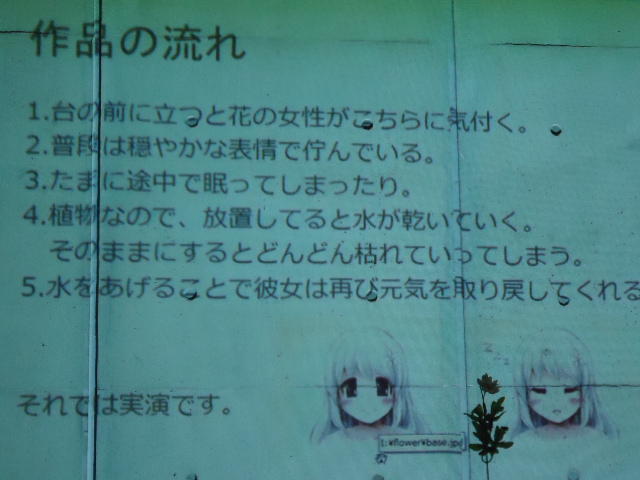 作品の流れ
1.台の前に立つと花の女性がこちらに気付く。
2.普段は穏やかな表情で佇んでいる。
3.たまに途中で眠ってしまったり。
4.植物なので、放置してると水が乾いていく。
そのままにするとどんどん枯れていってしまう。
5.水をあげることで彼女は再び元気を取り戻してくれる
それでは実演です。
zzz
t:¥flower¥base.jpg